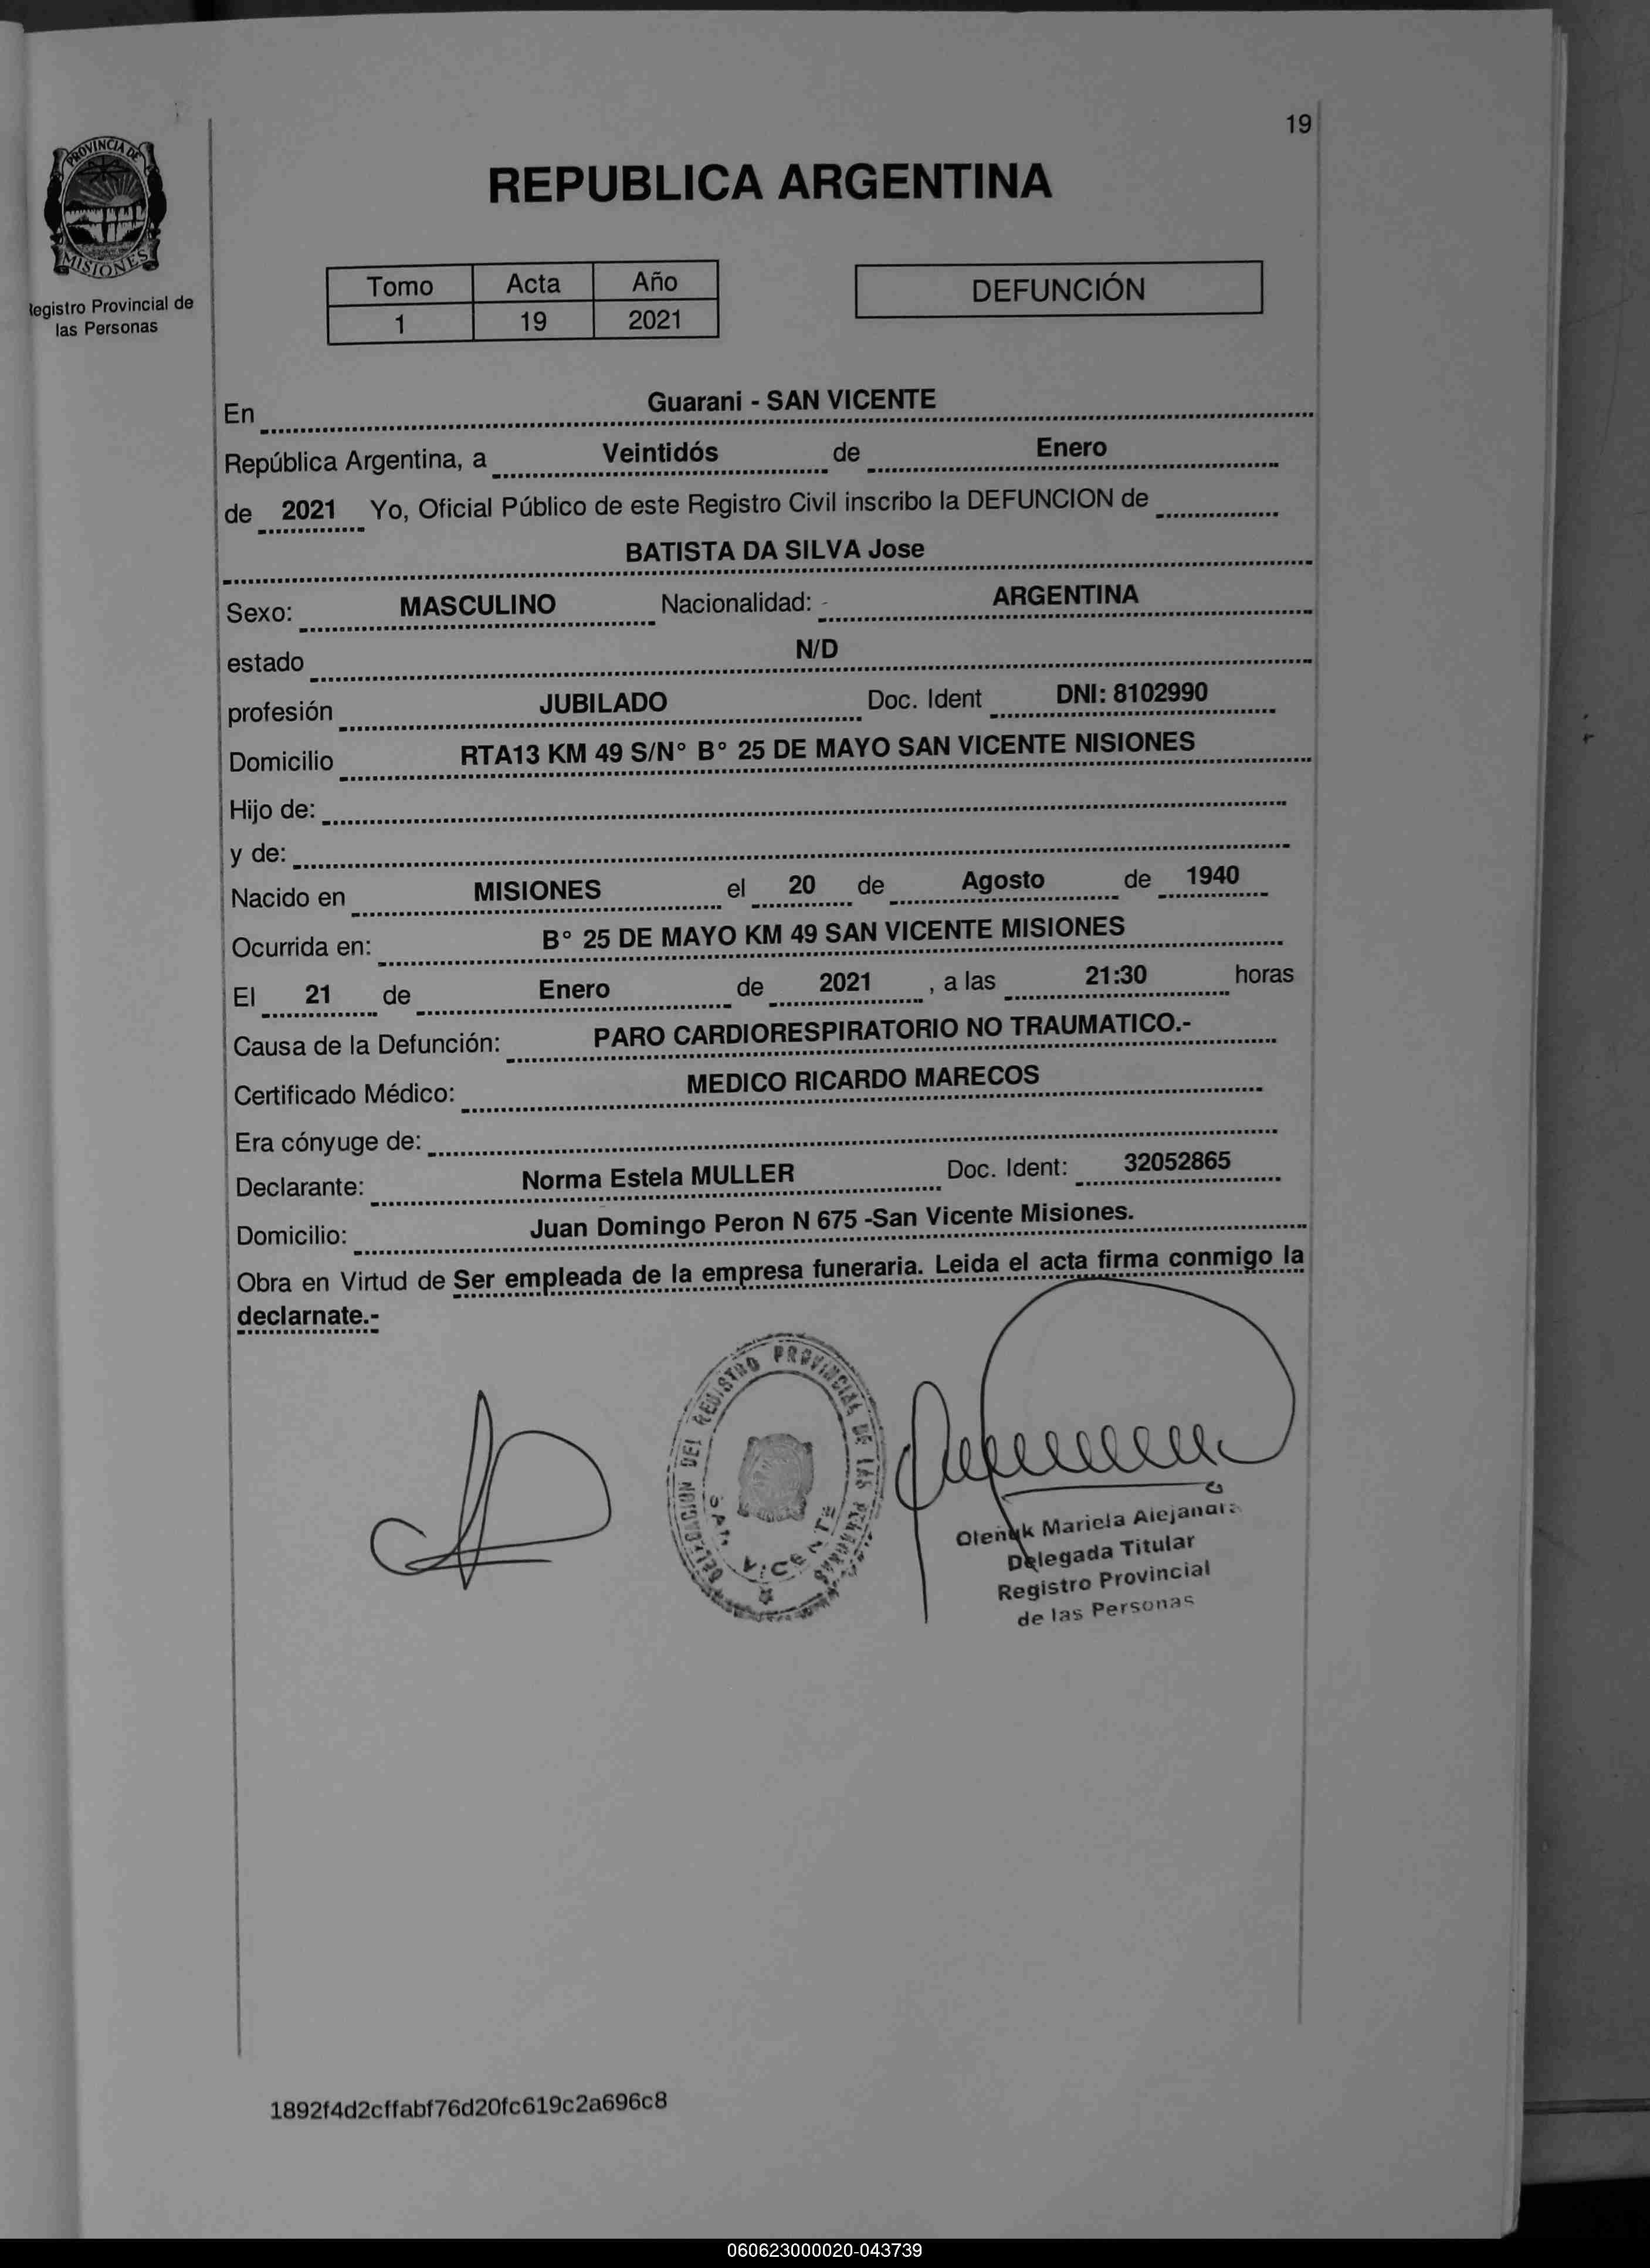 19
PROVINCIA DE
MISIONES
Registro Provincial de
las Personas
REPUBLICA ARGENTINA
Tomo Acta Año
1 19 2021
DEFUNCIÓN
En Guarani - SAN VICENTE
República Argentina, a Veintidós de Enero
de 2021 Yo, Oficial Público de este Registro Civil inscribo la DEFUNCION de
BATISTA DA SILVA Jose
Sexo: MASCULINO Nacionalidad: - ARGENTINA
estado N/D
profesión JUBILADO Doc. Ident DNI: 8102990
Domicilio RTA13 KM 49 S/N° B° 25 DE MAYO SAN VICENTE NISIONES
Hijo de:
y de:
Nacido en MISIONES el 20 de Agosto de 1940
Ocurrida en: B° 25 DE MAYO KM 49 SAN VICENTE MISIONES
El 21 de Enero de 2021 , a las 21:30 horas
Causa de la Defunción: PARO CARDIORESPIRATORIO NO TRAUMATICO.-
Certificado Médico: MEDICO RICARDO MARECOS
Era cónyuge de:
Declarante: Norma Estela MULLER Doc. Ident: 32052865
Domicilio: Juan Domingo Peron N 675 -San Vicente Misiones.
Obra en Virtud de Ser empleada de la empresa funeraria. Leida el acta firma conmigo la
declarnate.-
DELEGACION DEL REGISTRO PROVINCIAL DE LAS PERSONAS
SAN VICENTE
Olenyk Mariela Alejandra
Delegada Titular
Registro Provincial
de las Personas
1892f4d2cffabf76d20fc619c2a696c8
060623000020-043739